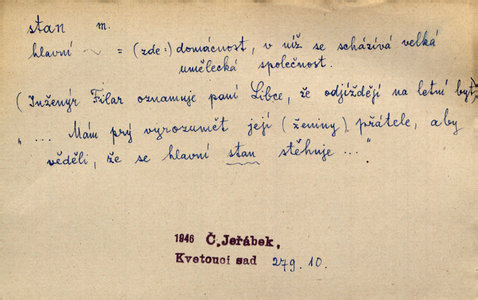 stan m.
hlavní ~ = (zde:) domácnost, v níž se scházívá velká
umělecká společnost.
(Inženýr Filar oznamuje paní Libce, že odjíždějí na letní byt:
"... Mám prý vyrozumět její (ženiny) přátele, aby
věděli, že se hlavní stan stěhuje ..."
1946 Č. Jeřábek,
Kvetoucí sad 279. 10.